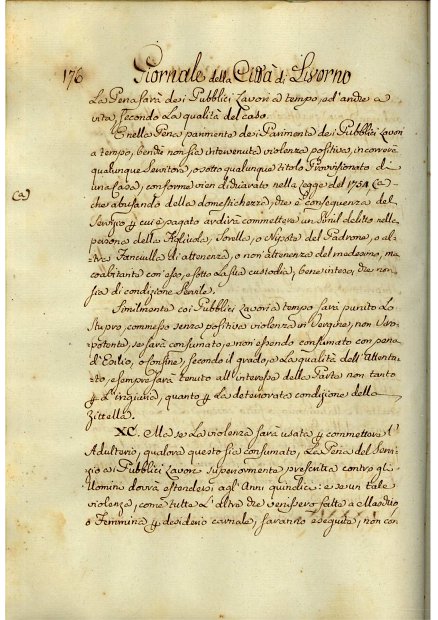 176 Giornale della Città di Livorno
La Pena sarà dei Pubblici Lavori a tempo, od' anche a
vita, secondo La qualità del caso.
E nella Pena parimente dei Parimente dei Pubblici Lavori
a tempo, benchè non sia intervenuta violenza positiva, incorrerà
qualunque Servitore, o sotto qualunque titolo Provisionato di
una Casa, conforme vien dichiarato nella Legge del 1754 (a)
che abusando della domestichezza, che è conseguenza del
Servizio per cui è pagato ardirà commettere un simil delitto nella
persona della Figliuola, Sorella, o Nipote del Padrone, o al=
tra Fanciulla di attenenza, o non attenenza del medesimo, ma
coabitante con esso, e sotto La sua custodia, bene inteso, che non
sia di condizione Servile.
(a)
Similmente coi Pubblici Lavori a tempo sarà punito Lo
Stupro, commesso senza positiva violenza in Vergine, non Ivo=
potente, se sarà consumato, e non essendo consumato con pena
d' Esilio, o Confine, secondo il grado, e La qualità dell' Attenta=
to, e sempre sarà tenuto all' interesse della Parte non tanto
per L' ingiuria, quanto per La deteriorata condizione della
Zittella.
XC. Ma se La violenza sarà usata per commettere L'
Adulterio, qualora questo sia consumato, La Pena del Servi=
zio ai Pubblici Lavori superiormente prescritta contro gli
Uomini dovrà estendersi agl' Anni quindici: e se un tale
violenza, come tutte L' altre che venissero fatte a Maschio,
o Femmina per desiderio carnale, saranno eseguite, non con